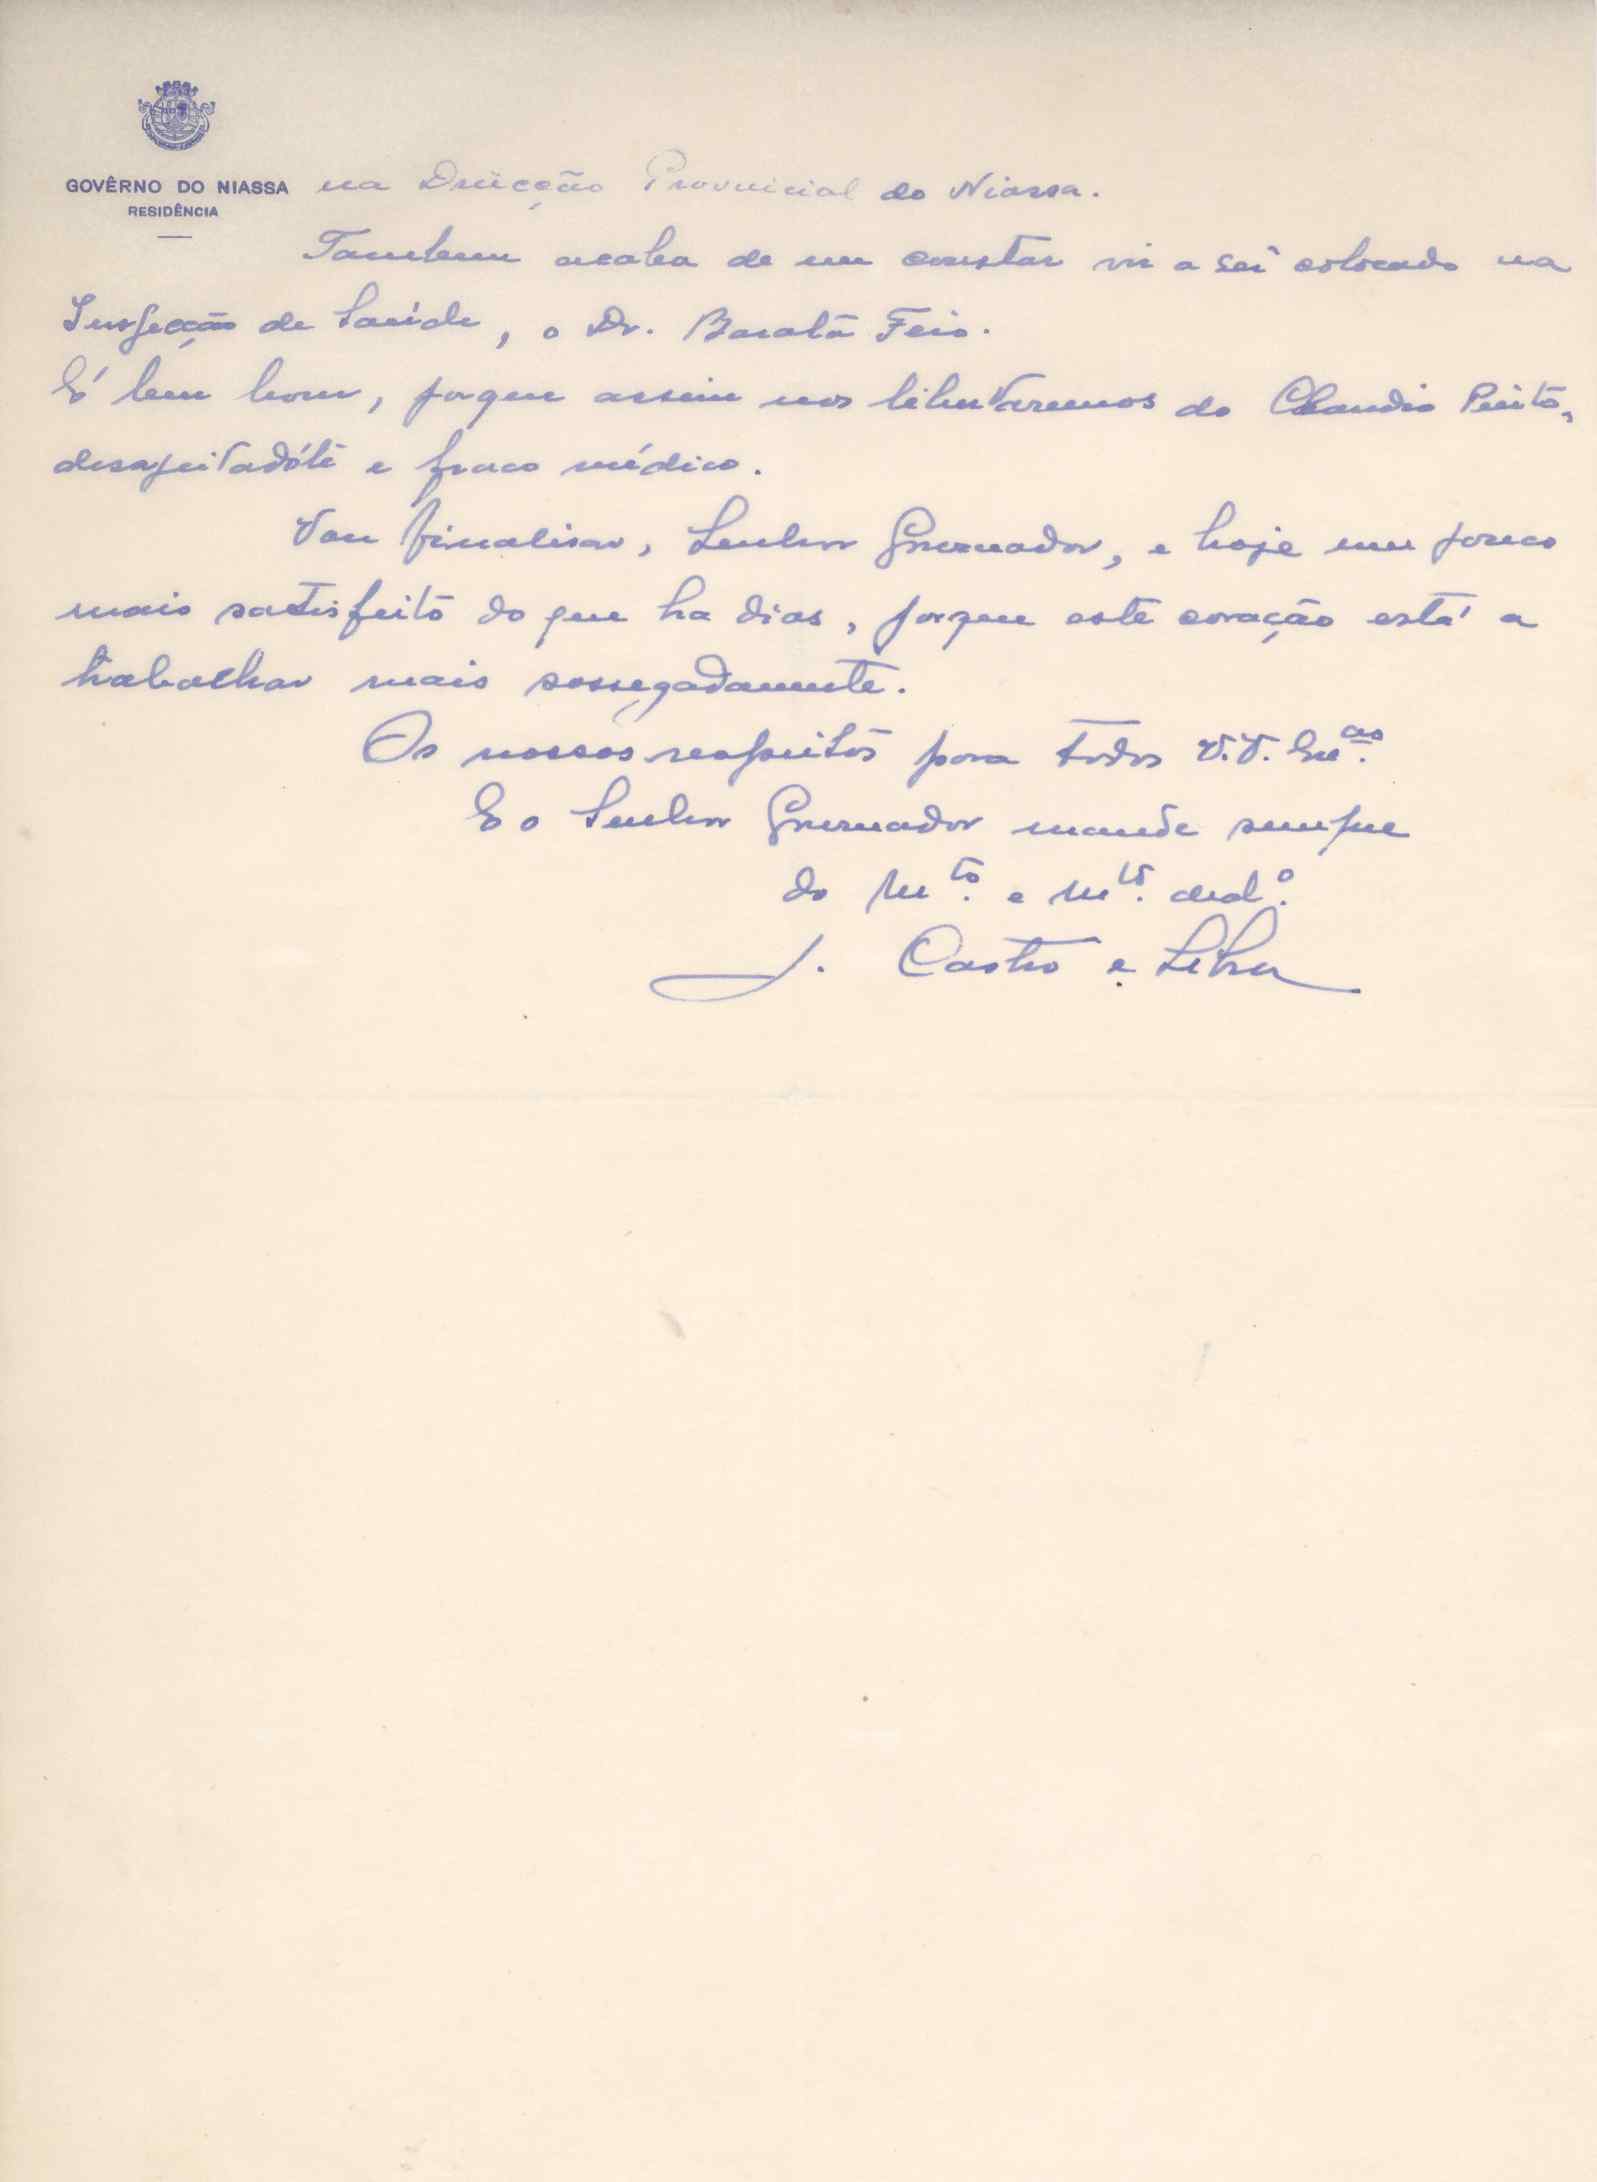 GOVÊRNO DO NIASSA
RESIDÊNCIA
na Direcção Provincial do Niassa.
Tambem acaba de me constar vir a ser colocado na
Inspecção de Saúde, o Dr. Barata Feio.
É bem bom, porque assim nos libertaremos do Claudio Pinto,
desajeitadóte e fraco médico.
Vou finalisar, Senhor Governador, e hoje um pouco
mais satisfeito do que ha dias, porque este coração está a
trabalhar mais sossegadamente.
Os nossos respeitos para todos V.V. Exas.
E o Senhor Governador mande sempre
do mto. e mto. dedo.
J. Castro e